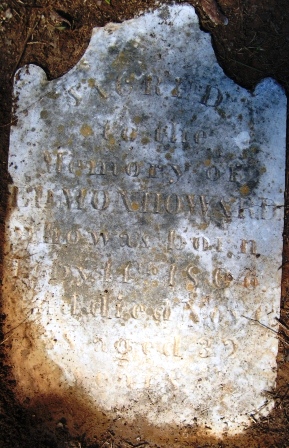 SACRED
to the
Memory of
EDMON HOWARD
who was born
1806
and died Nov
aged 39